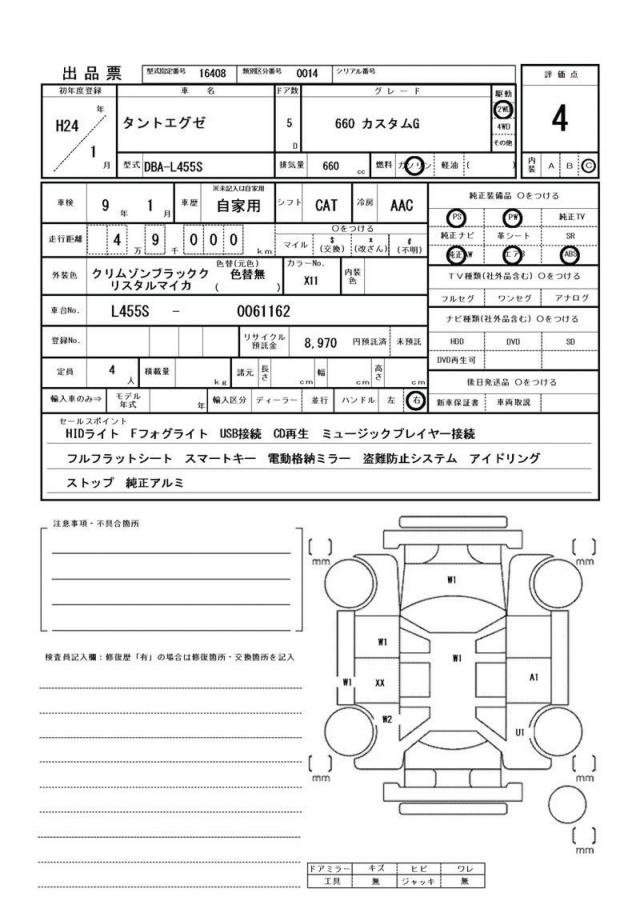 出品票 型式指定番号 16408 類別区分番号 0014 シリアル番号
評価点
4
初年度登録 車名 ドア数 グレード 駆動
H24 年 1 月 タントエグゼ 5 D 660 カスタムG 2WD 4WD その他
型式 DBA-L455S 排気量 660 cc 燃料 ガソリン 軽油 ( )
内装 A B C
車検 9 年 1 月 車歴 ※未記入は自家用 自家用 シフト CAT 冷房 AAC
走行距離 4 万 9 千 0 0 0 km ○をつける マイル $ (交換) x (改ざん) # (不明)
外装色 クリムゾンブラッククリスタルマイカ 色替(元色) 色替無 ( ) カラーNo. X11 内装色
車台No. L455S - 0061162
登録No. リサイクル預託金 8,970 円預託済 未預託
定員 4 人 積載量 kg 諸元 長さ cm 幅 cm 高さ cm
輸入車のみ⇒ モデル年式 年 輸入区分 ディーラー 並行 ハンドル 左 右
純正装備品 ○をつける
PS PW 純正TV
純正ナビ 革シート SR
純正AW エアB ABS
TV種類(社外品含む) ○をつける
フルセグ ワンセグ アナログ
ナビ種類(社外品含む) ○をつける
HDD DVD SD
DVD再生可
後日発送品 ○をつける
新車保証書 車両取説
セールスポイント
HIDライト Fフォグライト USB接続 CD再生 ミュージックプレイヤー接続
フルフラットシート スマートキー 電動格納ミラー 盗難防止システム アイドリング
ストップ 純正アルミ
注意事項・不具合箇所
検査員記入欄:修復歴「有」の場合は修復箇所・交換箇所を記入
[ ] mm [ ] mm
W1
W1 W1
W1 XX A1
W2 U1
[ ] mm [ ] mm
[ ] mm
ドアミラー キズ ヒビ ワレ
工具 無 ジャッキ 無